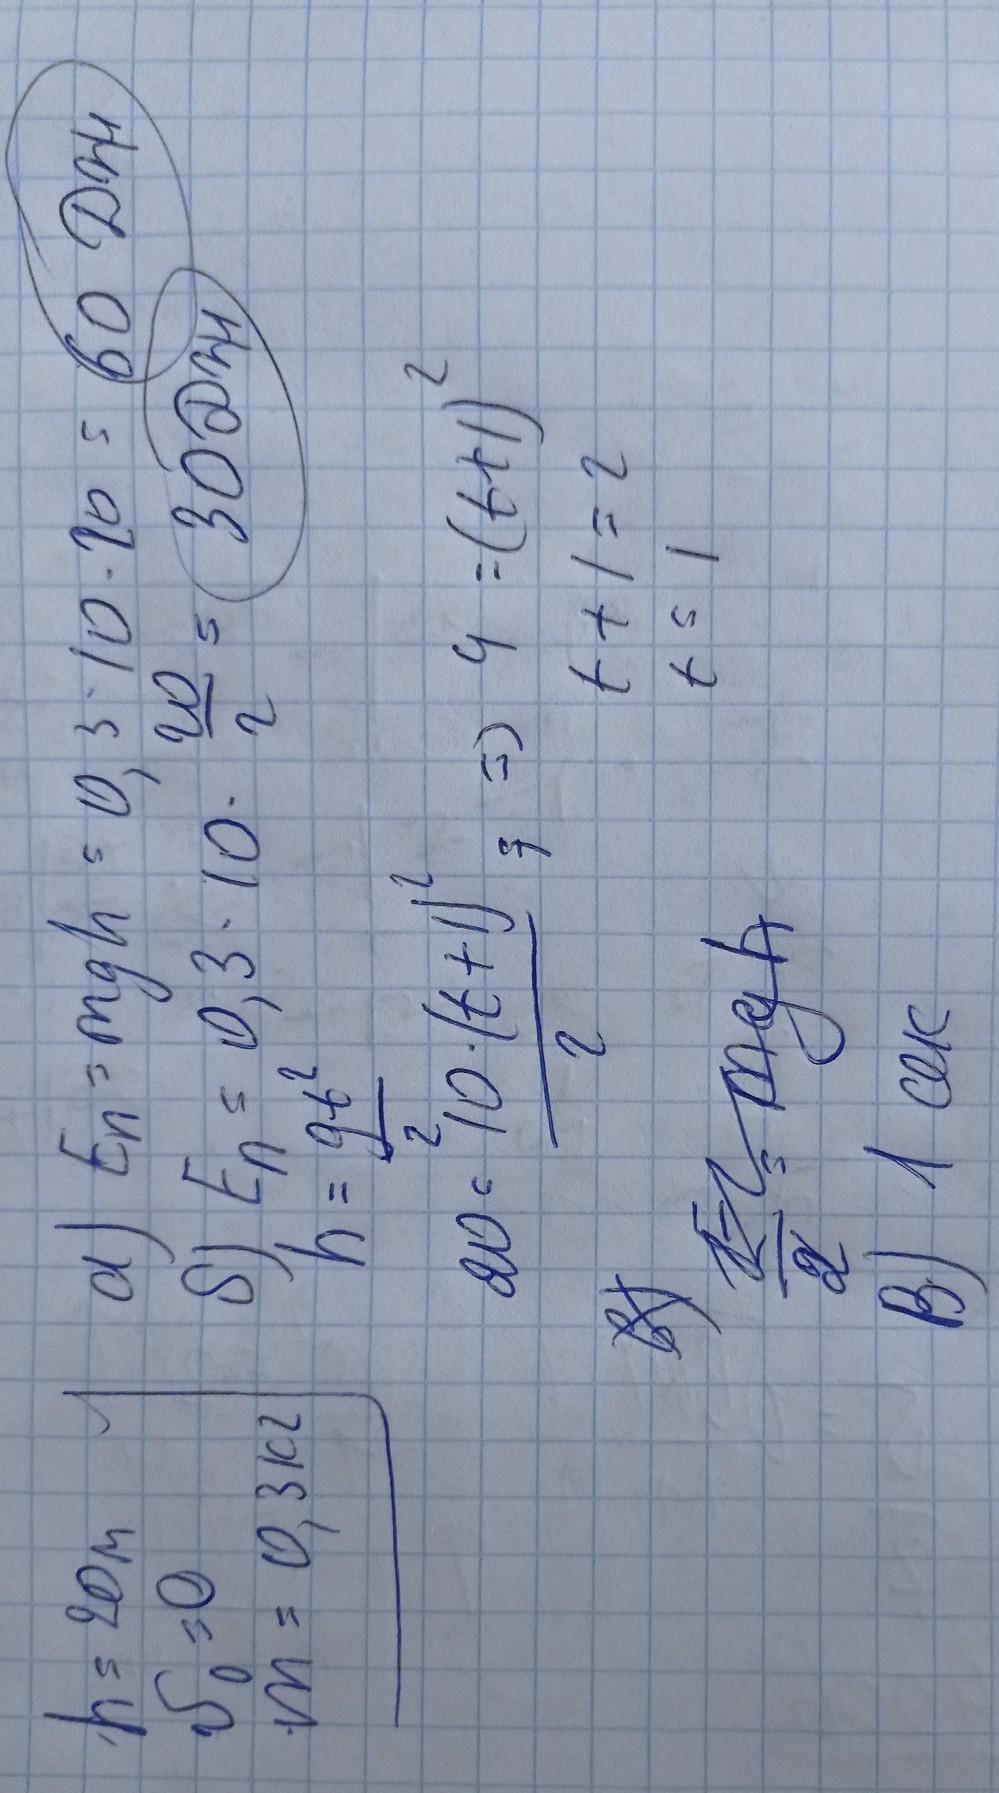 h = 20м
υ₀ = 0
m = 0,3кг
а) Eп = mgh = 0,3 · 10 · 20 = 60 Дж
б) Eп = 0,3 · 10 · 20/2 = 30 Дж
h = gt²/2
20 = 10 · (t+1)²/2 => 4 = (t+1)²
t + 1 = 2
t = 1
в)
= mgh
В) 1 сек